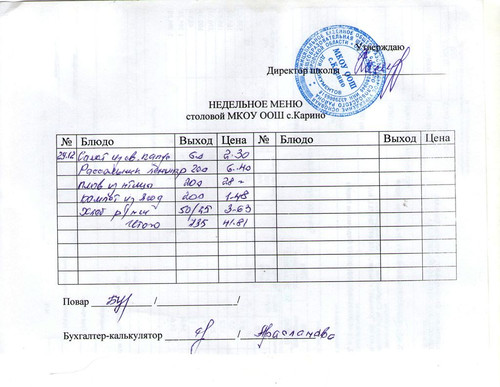 Утверждаю
Директор школы
МКОУ ООШ
с.Карино
НЕДЕЛЬНОЕ МЕНЮ
столовой МКОУ ООШ с.Карино
№ Блюдо Выход Цена № Блюдо Выход Цена
29.12 Салат из св. капус 60 2-30
Рассольник ленингр 200 6-40
Плов из птицы 200 28 =
Компот из ягод 200 1-48
Хлеб р/пш 50/25 3-63
Итого 735 41.81
Повар / /
Бухгалтер-калькулятор / Арасланова